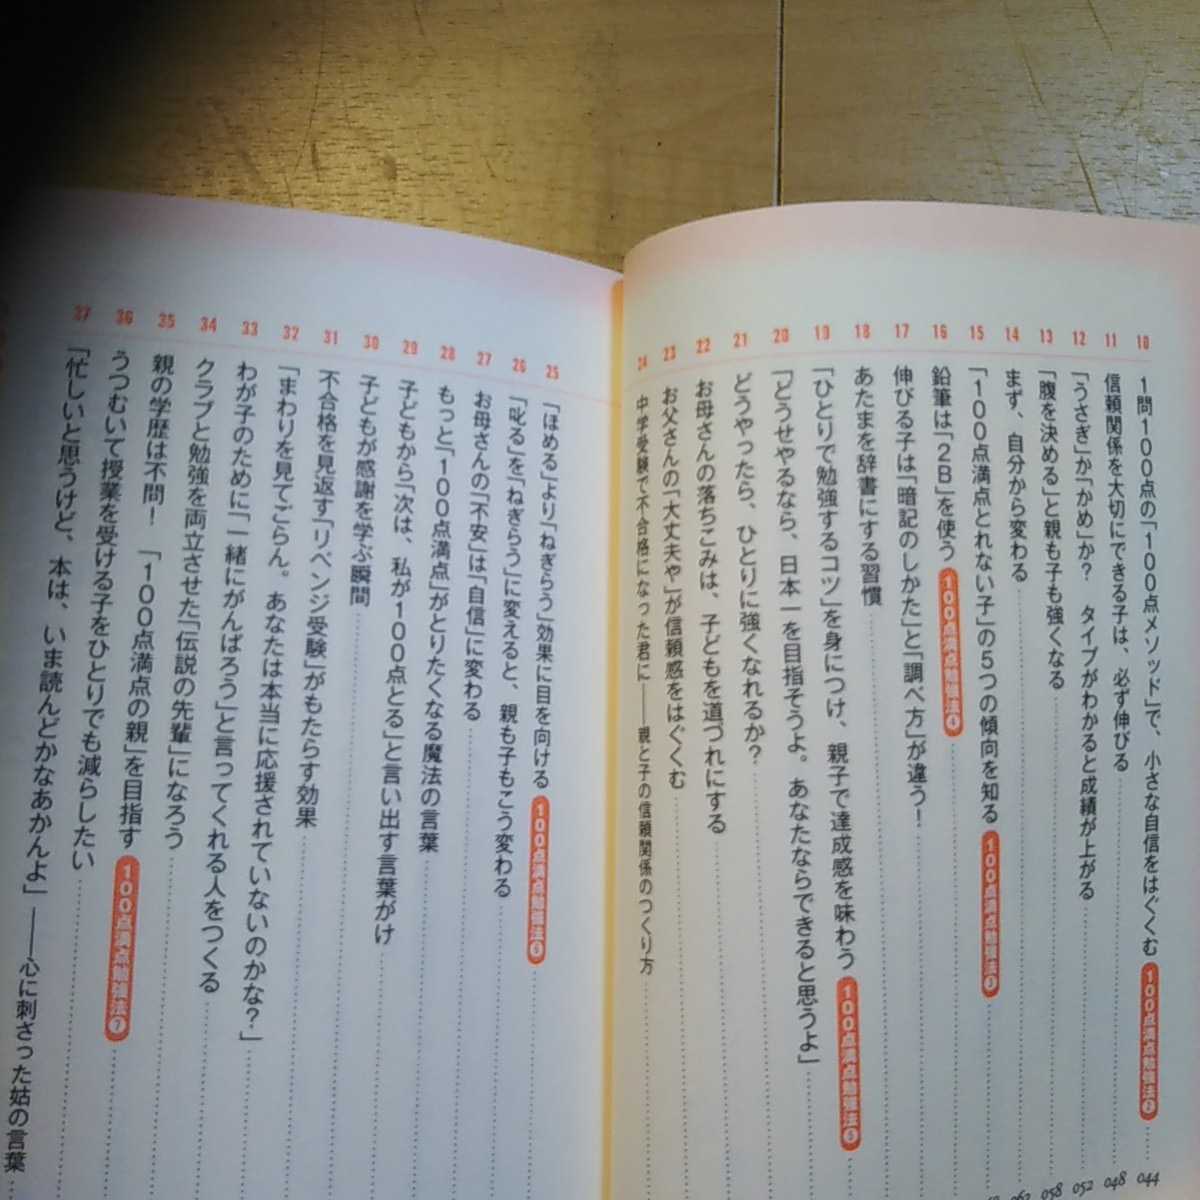 10 1問100点の「100点メソッド」で、小さな自信をはぐくむ 100点満点勉強法❷ 044
11 信頼関係を大切にできる子は、必ず伸びる 048
12 「うさぎ」か「かめ」か？ タイプがわかると成績が上がる 052
13 「腹を決める」と親も子も強くなる 058
14 まず、自分から変わる 062
15 「100点満点とれない子」の5つの傾向を知る 100点満点勉強法❸
16 鉛筆は「2B」を使う 100点満点勉強法❹
17 伸びる子は「暗記のしかた」と「調べ方」が違う！
18 あたまを辞書にする習慣
19 「ひとりで勉強するコツ」を身につけ、親子で達成感を味わう 100点満点勉強法❺
20 「どうせやるなら、日本一を目指そうよ。あなたならできると思うよ」
21 どうやったら、ひとりに強くなれるか？
22 お母さんの落ちこみは、子どもを道づれにする
23 お父さんの「大丈夫や」が信頼感をはぐくむ
24 中学受験で不合格になった君に――親と子の信頼関係のつくり方
25 「ほめる」より「ねぎらう」効果に目を向ける 100点満点勉強法❻
26 「叱る」を「ねぎらう」に変えると、親も子もこう変わる
27 お母さんの「不安」は「自信」に変わる
28 もっと「100点満点」がとりたくなる魔法の言葉
29 子どもから「次は、私が100点とる」と言い出す言葉がけ
30 子どもが感謝を学ぶ瞬間
31 不合格を見返す「リベンジ受験」がもたらす効果
32 「まわりを見てごらん。あなたは本当に応援されていないのかな？」
33 わが子のために「一緒にがんばろう」と言ってくれる人をつくる
34 クラブと勉強を両立させた「伝説の先輩」になろう
35 親の学歴は不問！ 「100点満点の親」を目指す 100点満点勉強法❼
36 うつむいて授業を受ける子をひとりでも減らしたい
37 「忙しいと思うけど、本は、いま読んどかなあかんよ」――心に刺さった姑の言葉